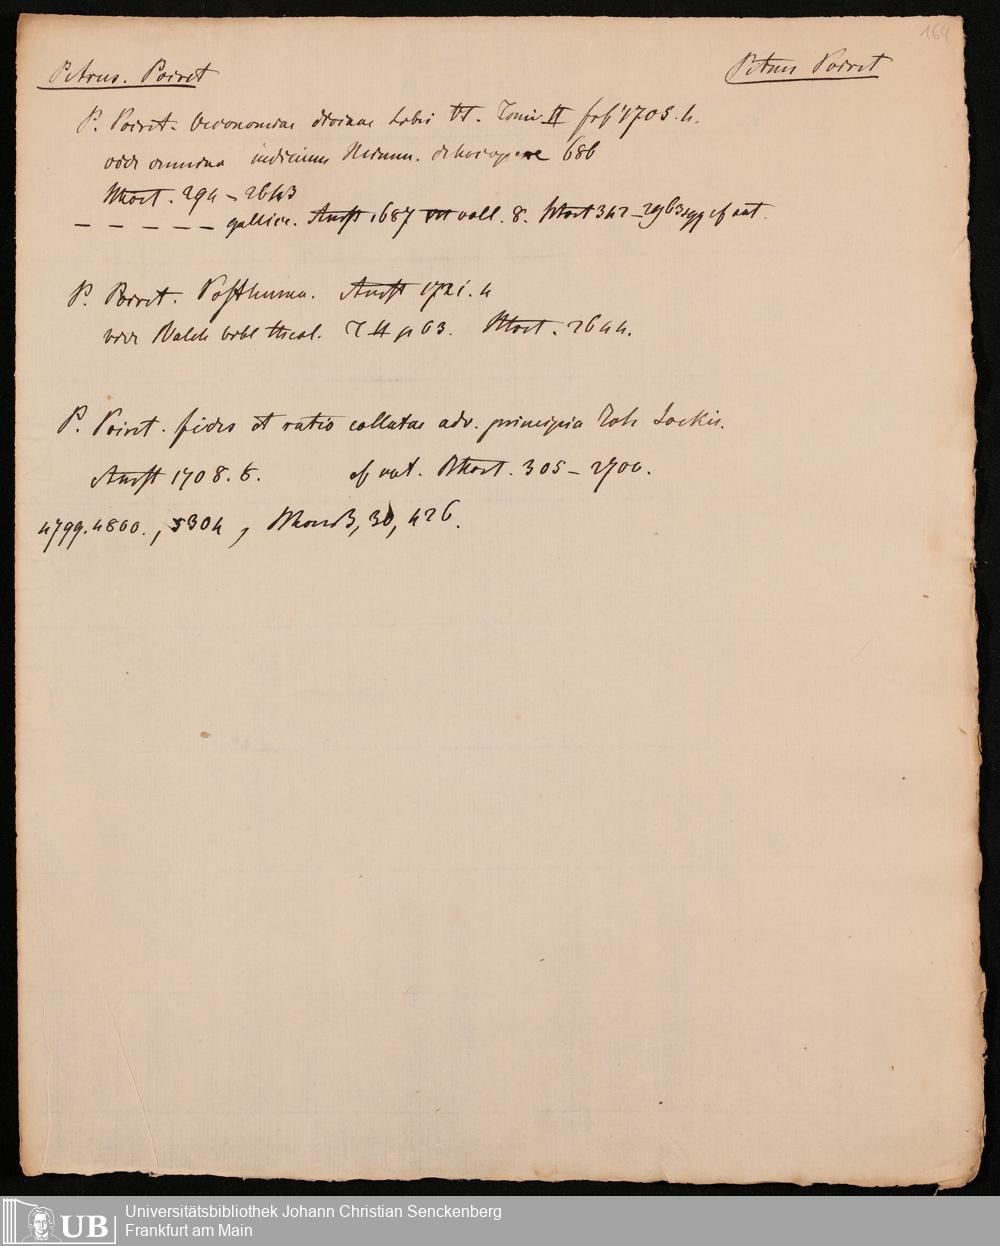 164
Petrus. Poiret
Petrus Poiret
P. Poiret. Oeconomiae divinae Libri VI. Tomi II frf 1705. 4.
vide omnino iudicium de hoc opere 686
294 - 2643
_ _ _ _ _ gallice. Amst 1687 VII voll. 8. 342 - 2963 sqq cf cat.
P. Poiret. Posthuma. Amst 1721. 4
vide Walch bibl theol. T II p 63. 2644.
P. Poiret. fides et ratio collatae adv. principia Joh Lockii.
Amst 1708. 8. cf cat. 305 - 2700.
4799. 4800., 5304, 30, 426.
UB
Universitätsbibliothek Johann Christian Senckenberg
Frankfurt am Main